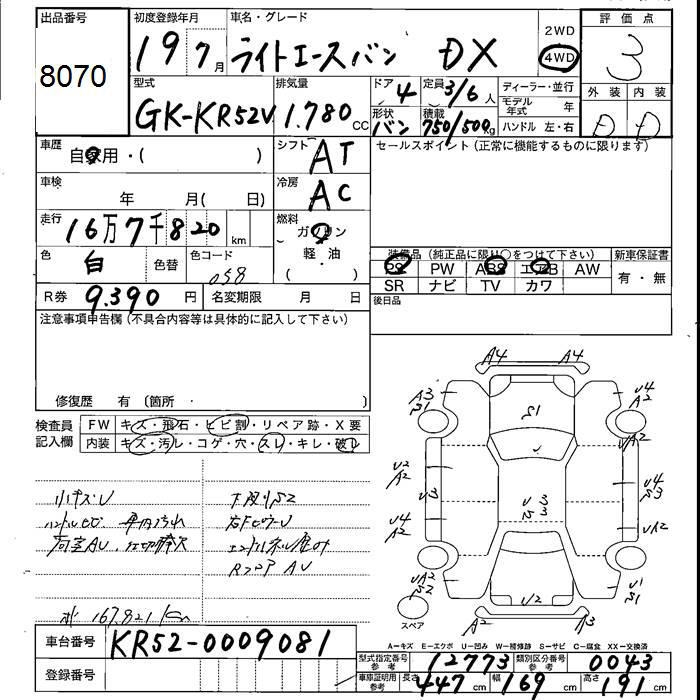 出品番号 初度登録年月 車名・グレード 評価点
8070 19 7月 ライトエースバン DX 2WD 4WD 3
型式 排気量 ドア 4 定員 3/6人 ディーラー・並行 外装 内装
GK-KR52V 1.780 CC 形状 バン 積載 750/500kg モデル年式 年 D D
ハンドル 左・右
車歴 自家用・( ) シフト AT セールスポイント(正常に機能するものに限ります)
車検 年 月( 日) 冷房 AC
走行 16万7千820 km 燃料 ガソリン
軽・油
( )
色 白 色替 色コード 058
装備品(純正品に限り○をつけて下さい) 新車保証書
PS PW ABS エアB AW 有・無
SR ナビ TV カワ
R券 9.390 円 名変期限 月 日 後日品
注意事項申告欄(不具合内容等は具体的に記入して下さい)
修復歴 有 (箇所 )
検査員記入欄 FW キズ・飛石・ヒビ割・リペア跡・X要
内装 キズ・汚レ・コゲ・穴・スレ・キレ・破レ
小キズU 下廻りS2
ハンドルヒビ 車内汚れ
荷室AU
RエアAU
167.821 km
A4 A4
A3 S1 S1 U4 A2
U2 A2 UA2
U3 U3 S3 U4 S3
U4 A2 UA2
UA2 S2 U2 U1 S1
A2 A3
スペア
A-キズ E-エクボ U-凹み W-補修跡 S-サビ C-腐食 XX-交換済
車台番号 KR52-0009081
登録番号
型式指定番号 参考 12773 類別区分番号 参考 0043
車庫証明用 参考 長さ 447 cm 幅 169 cm 高さ 191 cm